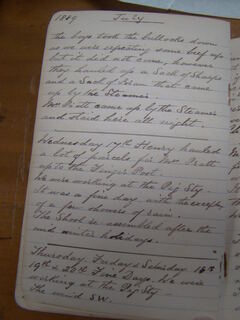 1889 July
the boys took the bullocks down
as we were expecting some beef up
but it did not come, however
they hauled up a Sack of Sharps
and a Sack of Bran that came
up by the Steamer.
Mr Pratt came up by the Steamer
and staid here all night.
Wednesday 17th Henry hauled
a lot of parcels for Mr Pratt
up to the Finger Post.
We were working at the Pig Sty
It was a fine day with the exception
of a few showers of rain.
The School re-assembled after the
mid winter holidays.
Thursday Friday & Saturday 18th
19th & 20th Fine Days. We were
working at the Pig Sty
The wind S.W.